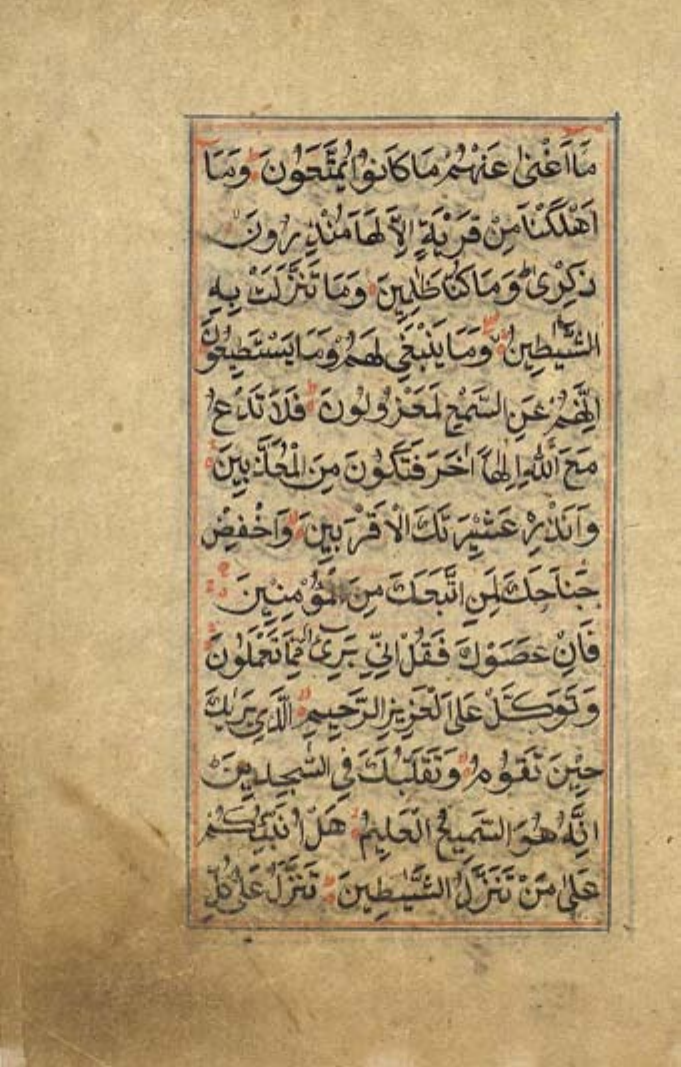 مَآ اَغْنٰى عَنْهُمْ مَا كَانُوْا يُمَتَّعُوْنَ وَمَا
اَهْلَكْنَا مِنْ قَرْيَةٍ اِلَّا لَهَا مُنْذِرُوْنَ
ذِكْرٰى وَمَا كُنَّا ظٰلِمِيْنَ وَمَا تَنَزَّلَتْ بِهِ
الشَّيٰطِيْنُ وَمَا يَنْبَغِيْ لَهُمْ وَمَا يَسْتَطِيْعُوْنَ
اِنَّهُمْ عَنِ السَّمْعِ لَمَعْزُوْلُوْنَ فَلَا تَدْعُ
مَعَ اللّٰهِ اِلٰهًا اٰخَرَ فَتَكُوْنَ مِنَ الْمُعَذَّبِيْنَ
وَاَنْذِرْ عَشِيْرَتَكَ الْاَقْرَبِيْنَ وَاخْفِضْ
جَنَاحَكَ لِمَنِ اتَّبَعَكَ مِنَ الْمُؤْمِنِيْنَ
فَاِنْ عَصَوْكَ فَقُلْ اِنِّيْ بَرِيْٓءٌ مِمَّا تَعْمَلُوْنَ
وَتَوَكَّلْ عَلَى الْعَزِيْزِ الرَّحِيْمِ الَّذِيْ يَرٰىكَ
حِيْنَ تَقُوْمُ وَتَقَلُّبَكَ فِي السّٰجِدِيْنَ
اِنَّهٗ هُوَ السَّمِيْعُ الْعَلِيْمُ هَلْ اُنَبِّئُكُمْ
عَلٰى مَنْ تَنَزَّلُ الشَّيٰطِيْنُ تَنَزَّلُ عَلٰى كُلِّ